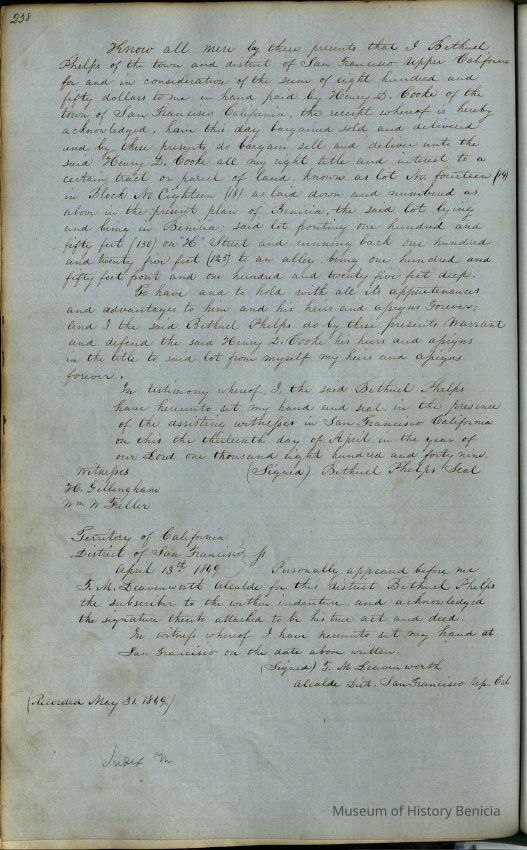 238
Know all men by these presents that I Bethuel
Phelps of the town and district of San Francisco Upper California
for and in consideration of the sum of eight hundred and
fifty dollars to me in hand paid by Henry D. Cooke of the
town of San Francisco California, the receipt whereof is hereby
acknowledged, have this day bargained sold and delivered
and by these presents do bargain sell and deliver unto the
said Henry D. Cooke all my right title and interest to a
certain tract or parcel of land, known as lot No. fourteen (14)
in Block No Eighteen (18) as laid down and numbered as
above in the present plan of Benicia, the said lot lying
and being in Benicia; said lot fronting one hundred and
fifty feet (150) on "H" Street and running back one hundred
and twenty five feet (125) to an alley, being one hundred and
fifty feet front and one hundred and twenty five feet deep.
To have and to hold with all its appurtenances
and advantages to him and his heirs and assigns Forever;
And I the said Bethuel Phelps do by these presents Warrant
and defend the said Henry D. Cooke his heirs and assigns
in the title to said lot from myself my heirs and assigns
forever.
In testimony whereof, I, the said Bethuel Phelps
have hereunto set my hand and seal in the presence
of the assisting witnesses in San Francisco California
on this the thirteenth day of April in the year of
our Lord one thousand eight hundred and forty nine.
Witnesses (Signed) Bethuel Phelps Seal
H. Gillingham
Wm W Fuller
Territory of California
District of San Francisco } ss
April 13th 1849 Personally appeared before me
T. M. Leavenworth Alcalde for this district Bethuel Phelps
the subscriber to the within indenture, and acknowledged
the signature thereto attached to be his true act and deed.
In witness whereof I have hereunto set my hand at
San Francisco on the date above written.
(Signed) T. M. Leavenworth
Alcalde Dist. San Francisco Up. Cal
(Recorded May 31. 1849.)
Index
Museum of History Benicia